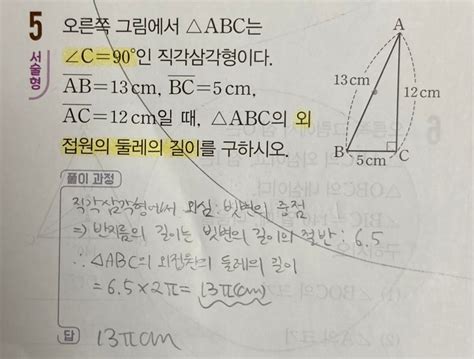 5
서술형
오른쪽 그림에서 △ABC는
∠C=90°인 직각삼각형이다.
AB=13cm, BC=5cm,
AC=12cm일 때, △ABC의 외
접원의 둘레의 길이를 구하시오.
A
13cm
12cm
B
5cm
C
풀이 과정
직각삼각형에서 외심 : 빗변의 중점
⇒ 반지름의 길이는 빗변의 길이의 절반 : 6.5
∴ △ABC의 외접원의 둘레의 길이
= 6.5×2π = 13π(cm)
답
13πcm